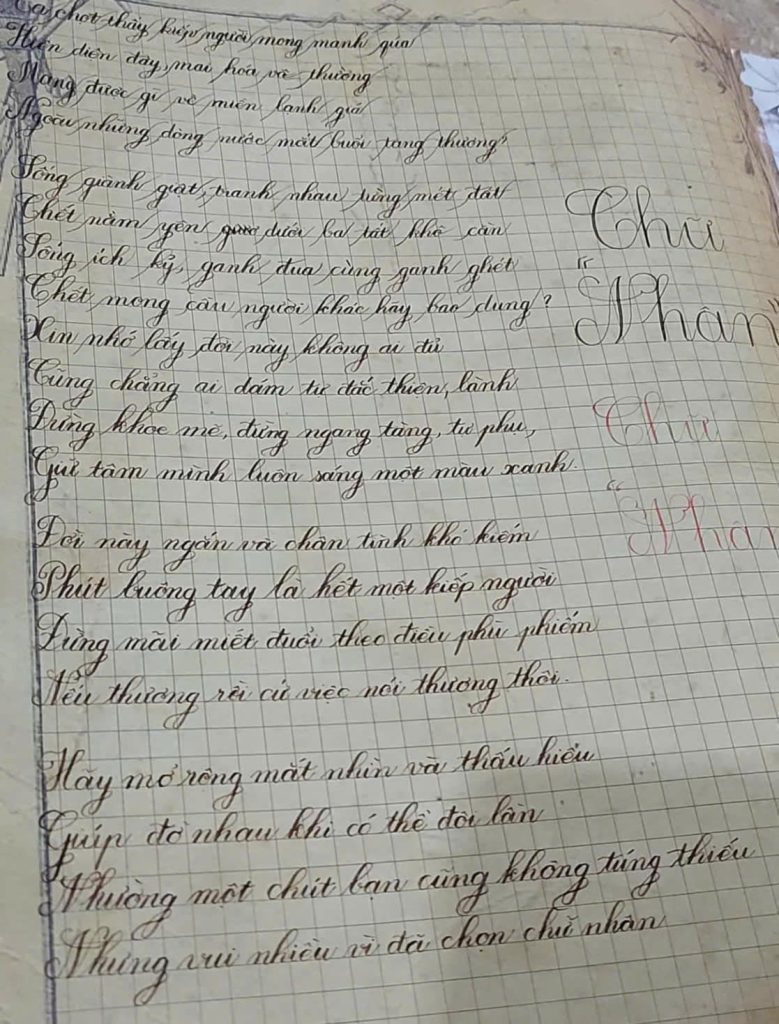 Ta chợt thấy kiếp người mong manh quá
Hiện diện đây, mai hóa vô thường
Mang được gì về miền lạnh giá
Ngoài những dòng nước mắt buổi tang thương?
Sống giành giật, tranh nhau từng mét đất
Chết nằm yên dưới ba tất khô cằn
Sống ích kỷ, ganh đua cùng ganh ghét
Chết mong cầu người khác hãy bao dung?
Xin nhớ lấy đời này không ai đủ
Cũng chẳng ai dám tự đắc thiện, lành
Đừng khoe mẽ, đừng ngang tàng, tự phụ,
Giữ tâm mình luôn sáng một màu xanh.
Đời này ngắn và chân tình khó kiếm
Phút buông tay là hết một kiếp người
Đừng mãi miết đuổi theo điều phù phiếm
Nếu thương rồi cứ việc nói thương thôi.
Hãy mở rộng mắt nhìn và thấu hiểu
Giúp đỡ nhau khi có thể đôi lần
Nhường một chút bạn cũng không túng thiếu
Nhưng vui nhiều vì đã chọn chữ nhân
Chữ
"Nhân"
Chữ
"Nhân